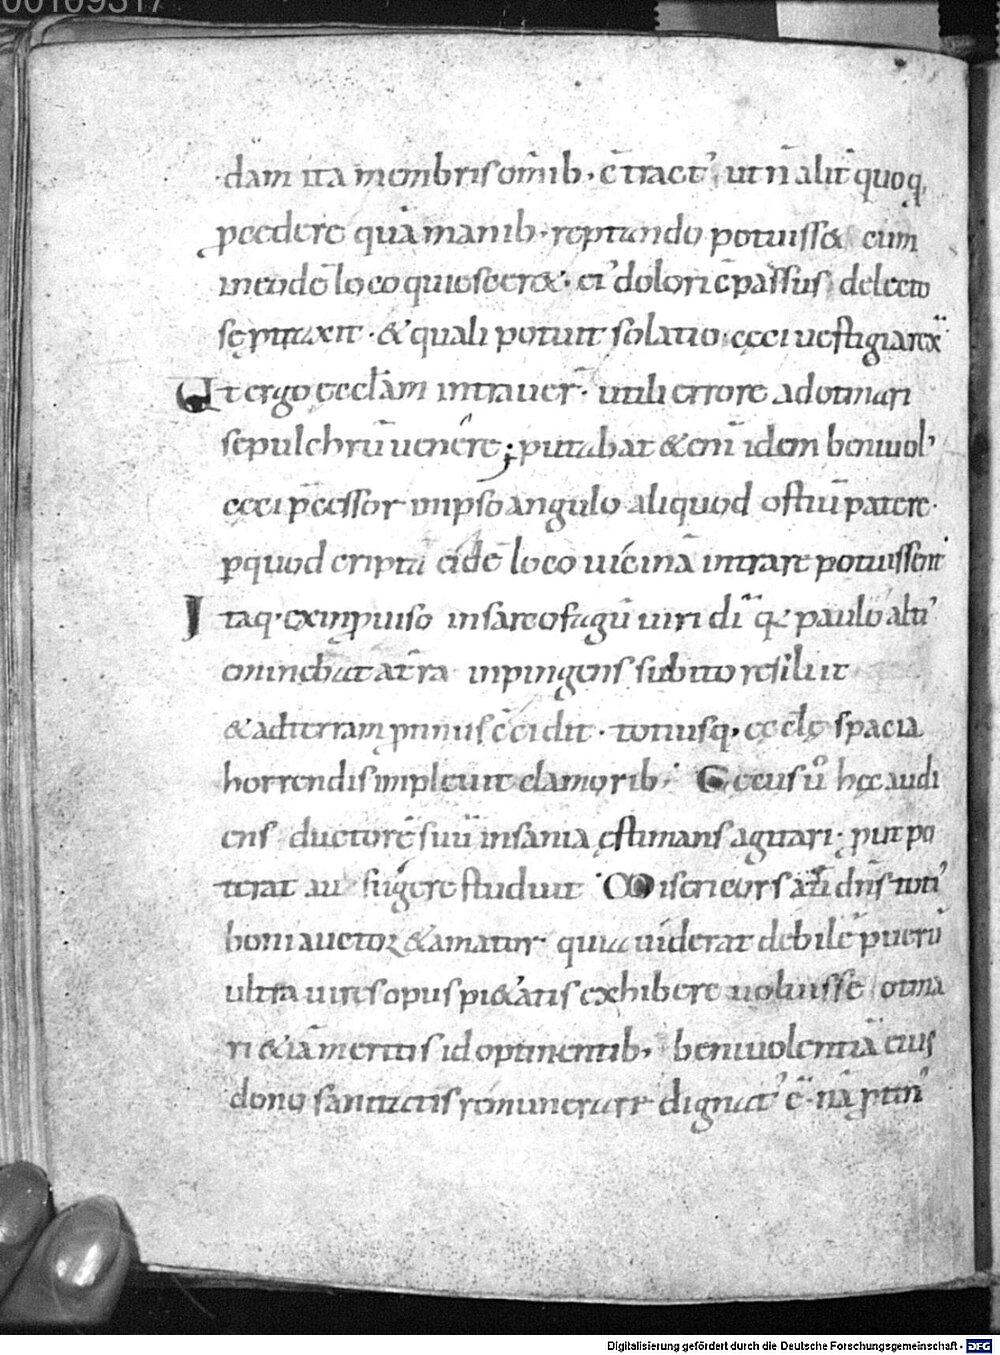 00109317
dam ita membris om̄ib·c̄tract᾽ ut n̄ alit̄ quoq,
p̄cedere quā manib·reptando potuiss& cum
ineodē loco quiesceræ· ei᾽ dolori c̄passus delecto
se p̄traxit·& quali potuit solatio·cęci uestigia rex̄
Ut ergo ęccl̄am intrauer̄· utili errore ad otmari
sepulchrū uenêre; putabat &eni᷄ idem beniuol᾽
cęci p̄cessor inipso angulo aliquod ostiū patere·
pquod cripta eidē loco uicinā intrare potuissent
Itaq·exinp̄uiso insarcofagū uiri dī q paulo alti᾽
eminebat at̄ra inpingens subito resiluit
&adterram p̄nnus c̄cidit·totiusq, ęccl̄ę spacia
horrendis impleuit clamorib· Cecus ū hęc audi
ens ductorē suū insania ęstimans agitari· put po
terat au fugere studuit Misericors at̄ dn̄s toti᾽
boni auctor & amator· quia uiderat debilē puerū
ultra uires opus pi&atis exhibere uoluisse otma
ri &iā meritis id optinentib, beniuolentiā eius
dono sanitatis remunerare dignat᾽ ē·nā ptin᾽
Digitalisierung gefördert durch die Deutsche Forschungsgemeinschaft - DFG